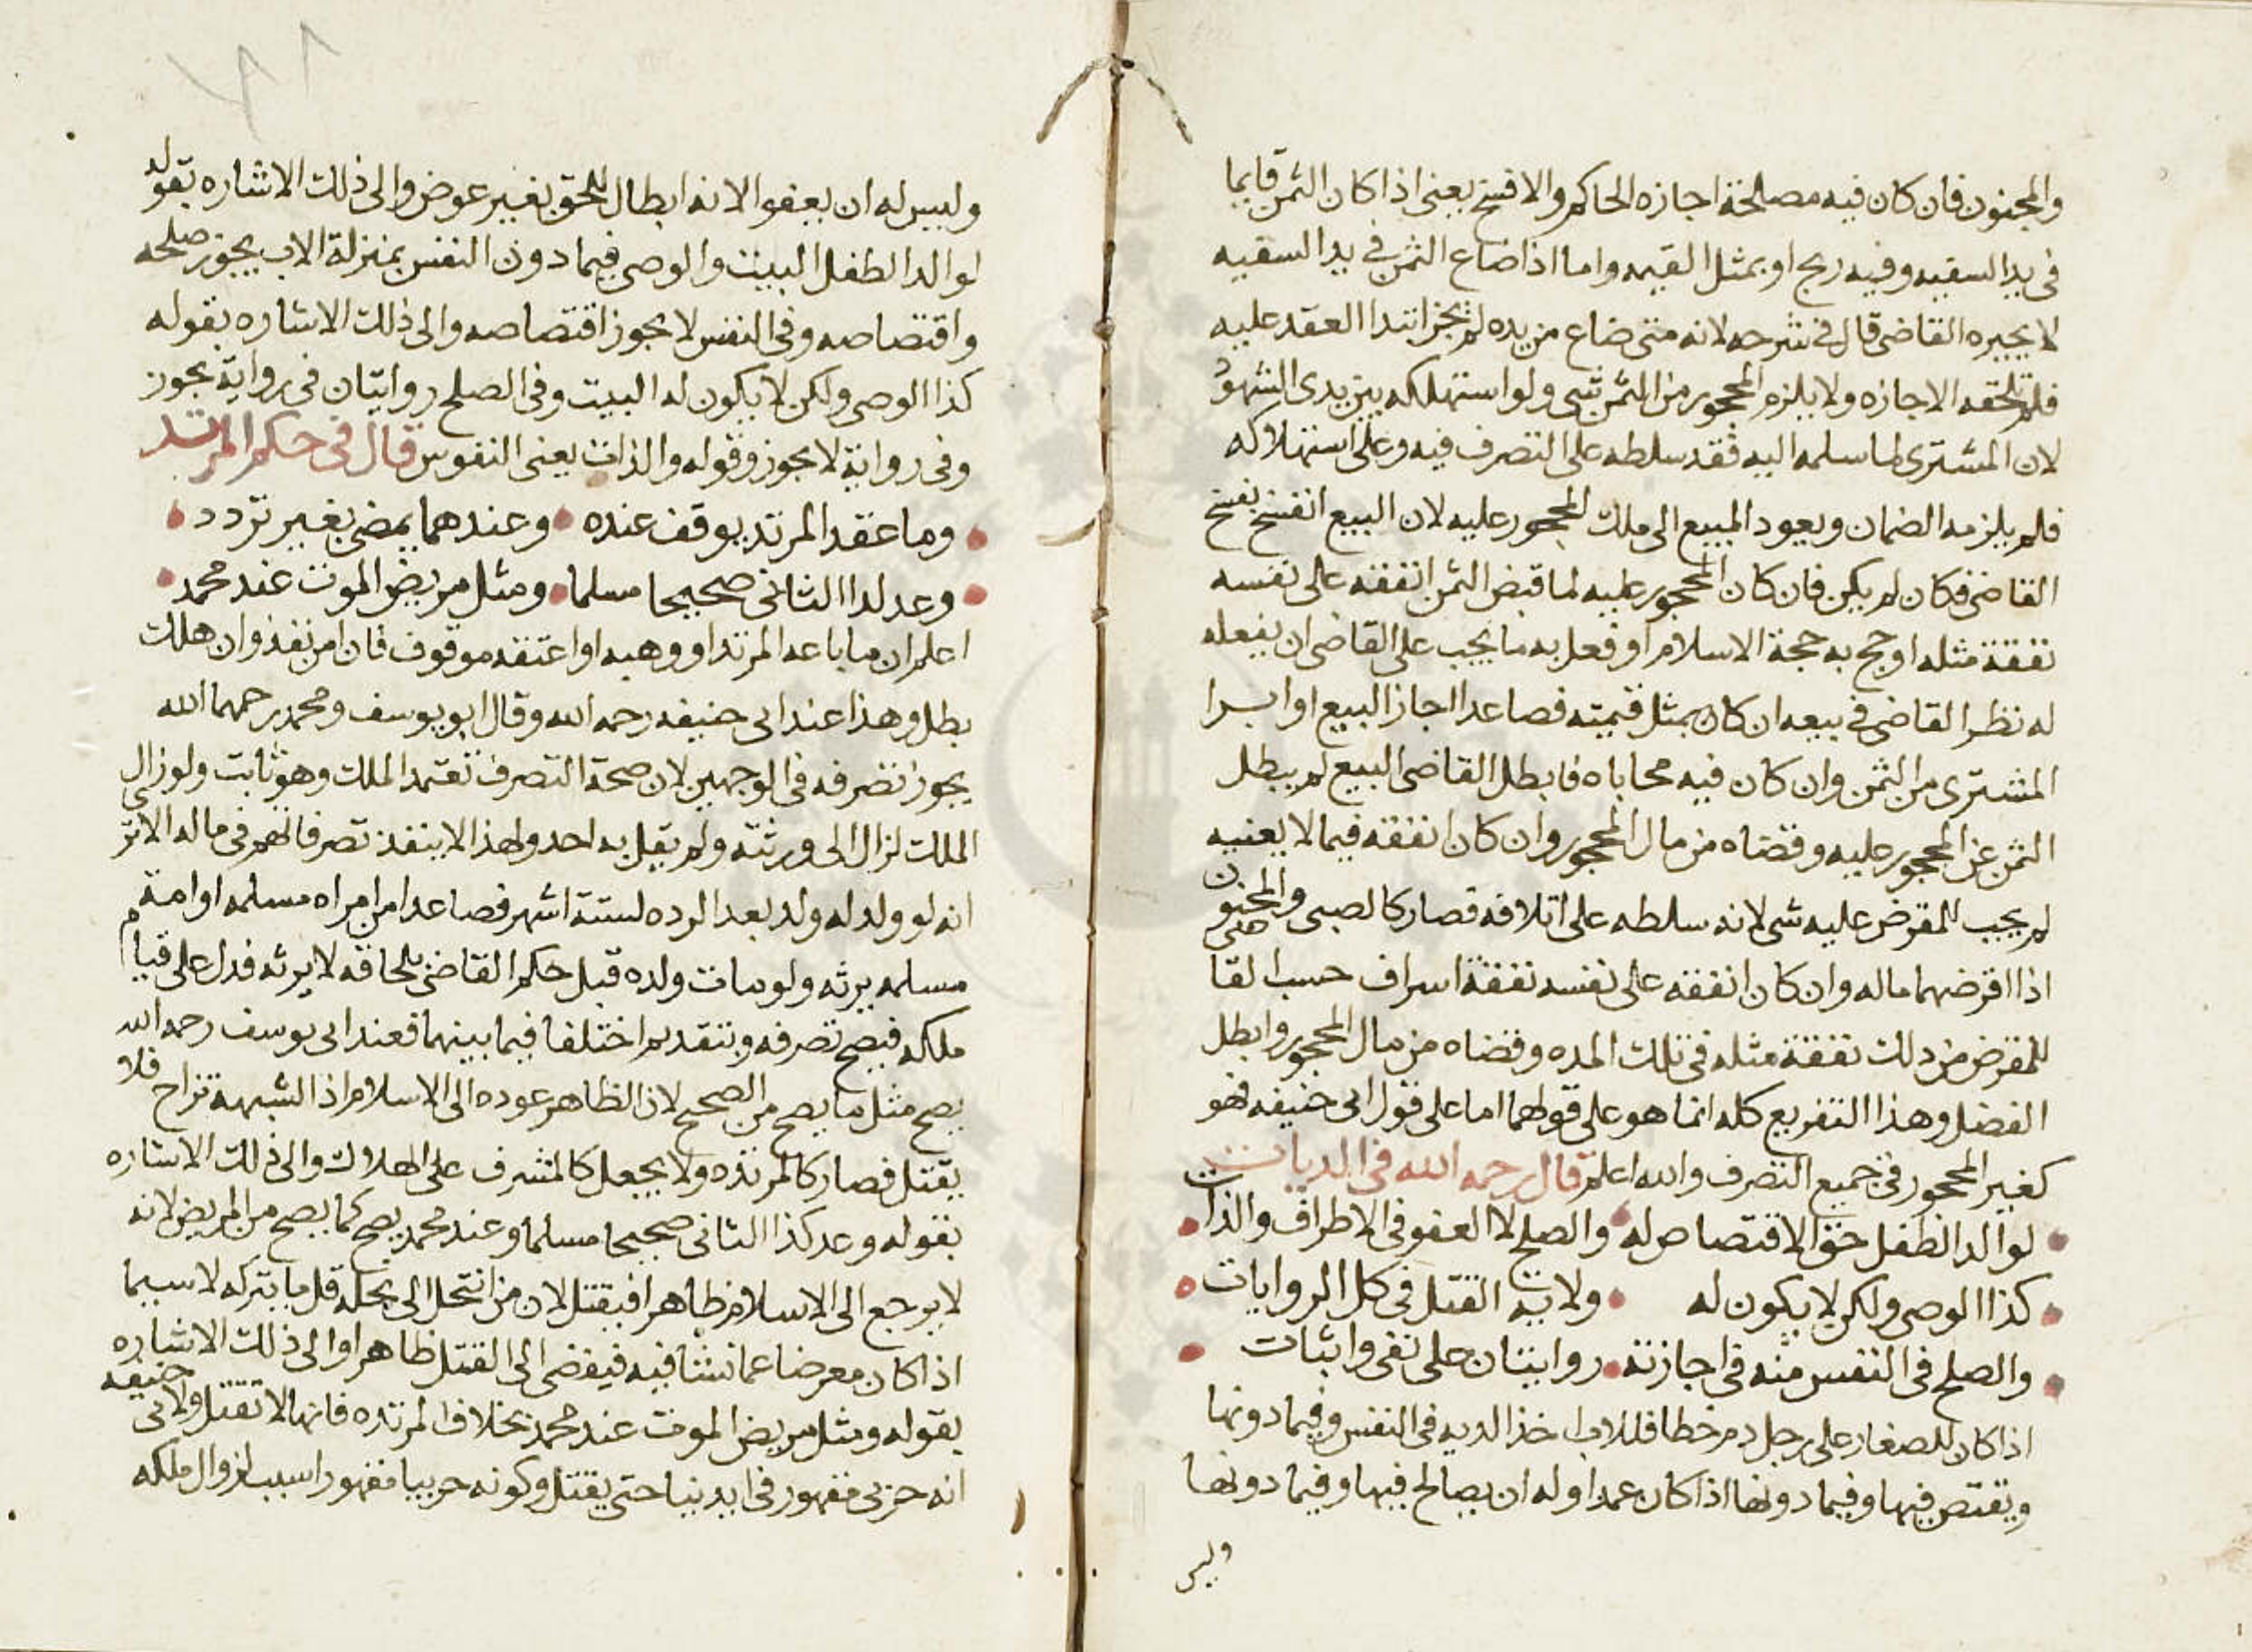 والمجنون فان كان فيه مصلحة اجازه الحاكم والا فسخ يعنى اذا كان الثمن قايما
فى يد السفيه وفيه ربح او بمثل القيمه واما اذا ضاع الثمن فى يد السفيه
لا يجيزه القاضى قال فى شرحه لانه متى ضاع من يده لم يجز ابتدا العقد عليه
فلم تلحقه الاجازه ولا يلزم المحجور من الثمن شى ولو استهلكه بين يدى الشهود
لان المشترى لما سلمه اليه فقد سلطه على التصرف فيه وعلى استهلاكه
فلم يلزمه الضمان ويعود المبيع الى ملك المحجور عليه لان البيع انفسخ بفسخ
القاضى فكان لم يكن فان كان المحجور عليه لما قبض الثمن انفقه على نفسه
نفقة مثله او حج به حجة الاسلام او فعل به ما يجب على القاضى ان يفعله
له نظر القاضى فى بيعه ان كان بمثل قيمته فصاعدا اجاز البيع او ابرا
المشترى من الثمن وان كان فيه محاباه فابطل القاضى البيع لم يبطل
الثمن عن المحجور عليه وقضاه من مال المحجور وان كان انفقه فيما لا يعنيه
لم يجب للمقرض عليه شى لانه سلطه على اتلافه فصار كالصبى والمجنون
اذا اقرضهما ماله وان كان انفقه على نفسه نفقة اسراف حسب القاضى
للمقرض من ذلك نفقة مثله فى تلك المده وقضاه من مال المحجور وابطل
الفضل وهذا التفريع كله انما هو على قولهما اما على قول ابى حنيفه فهو
كغير المحجور فى جميع التصرف والله اعلم قال رحمه الله فى الديات
لوالد الطفل حق الاقتصاص له والصلح لا العفو فى الاطراف والذات
كذا الوصى ولكن لا يكون له ولاية القتل فى كل الروايات
والصلح فى النفس منه فى اجازته روايتان على نفى واثبات
اذا كان للصغار على رجل دم خطا فللاب اخذ الديه فى النفس وفيما دونها
ويقتص فيها وفيما دونها اذا كان عمدا وله ان يصالح فيها وفيما دونها
وليس
وليس له ان يعفو الا انه ابطال للحق بغير عوض والى ذلك الاشاره بقوله
لوالد الطفل البيت والوصى فيما دون النفس بمنزلة الاب يجوز صلحه
واقتصاصه وفى النفس لا يجوز اقتصاصه والى ذلك الاشاره بقوله
كذا الوصى ولكن لا يكون له البيت وفى الصلح روايتان فى رواية يجوز
وفى رواية لا يجوز وقوله والذات يعنى النفوس قال فى حكم المرتد
وما عقد المرتد يوقف عنده وعندهما يمضى بغير تردد
وعد لدا الثانى صحيحا مسلما ومثل مريض الموت عند محمد
اعلم ان ما باعه المرتد او وهبه او اعتقه موقوف فان امن نفذ وان هلك
بطل وهذا عند ابى حنيفه رحمه الله وقال ابو يوسف ومحمد رحمهما الله
يجوز تصرفه فى الوجهين لان صحة التصرف تعتمد الملك وهو ثابت ولو زال
الملك لزال الى ورثته ولم يقل به احد ولهذا لا ينفذ تصرفاتهم فى ماله الا ترى
انه لو ولد له ولد بعد الرده لستة اشهر فصاعدا من امراه مسلمه او امة
مسلمه يرثه ولو مات ولده قبل حكم القاضى بلحاقه لا يرثه فدل على قيام
ملكه فيصح تصرفه وينفذ ثم اختلفا فيما بينهما فعند ابى يوسف رحمه الله
يصح مثل ما يصح من الصحيح لان الظاهر عوده الى الاسلام اذ الشبهة تزاح فلا
يقتل فصار كالمرتده ولا يجعل كالمشرف على الهلاك والى ذلك الاشاره
بقوله وعد كذا الثانى صحيحا مسلما وعند محمد يصح كما يصح من المريض لانه
لا يرجع الى الاسلام ظاهرا فيقتل لان من انتحل الى نحلة قل ما يتركه لا سيما
اذا كان معرضا عما نشا فيه فيفضى الى القتل ظاهرا والى ذلك الاشاره
بقوله ومثل مريض الموت عند محمد بخلاف المرتده فانها لا تقتل ولابى حنيفه
انه حربى مقهور فى ايدينا حتى يقتل وكونه حربيا مقهورا سبب لزوال ملكه